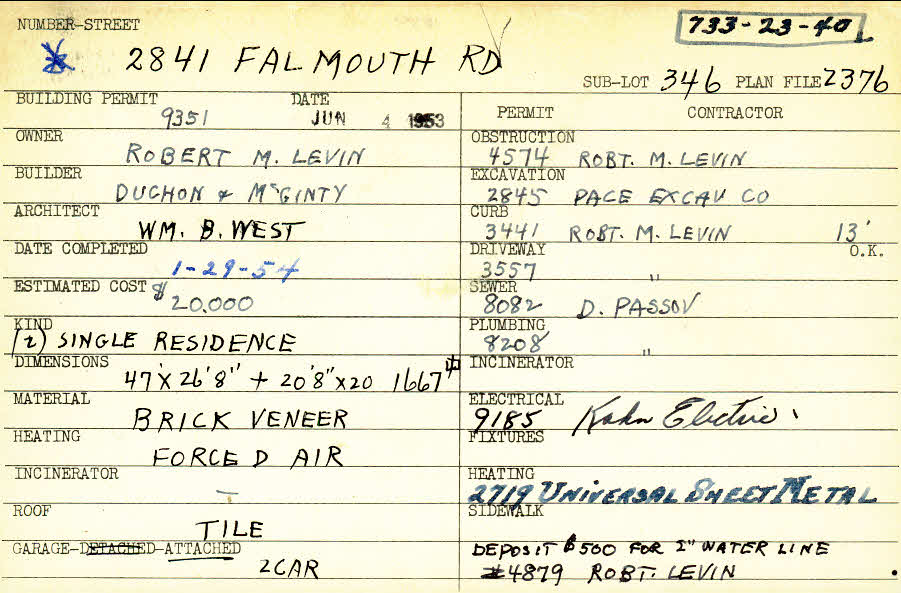 NUMBER-STREET
733-23-40
2841 FALMOUTH RD
SUB-LOT 346 PLAN FILE 2376
BUILDING PERMIT DATE
9351 JUN 4 1953
OWNER
ROBERT M. LEVIN
BUILDER
DUCHON & McGINTY
ARCHITECT
WM. B. WEST
DATE COMPLETED
1-29-54
ESTIMATED COST $
20,000
KIND
(2) SINGLE RESIDENCE
DIMENSIONS
47'X26'8" + 20'8"X20 1667
MATERIAL
BRICK VENEER
HEATING
FORCED AIR
INCINERATOR
—
ROOF
TILE
GARAGE-DETACHED-ATTACHED
2 CAR
PERMIT CONTRACTOR
OBSTRUCTION
4574 ROBT. M. LEVIN
EXCAVATION
2845 PACE EXCAV CO
CURB
3441 ROBT. M. LEVIN 13'
DRIVEWAY O.K.
3557 "
SEWER
8082 D. PASSOV
PLUMBING
8208 "
INCINERATOR
ELECTRICAL
9185 Kahn Electric
FIXTURES
HEATING
2719 UNIVERSAL SHEET METAL
SIDEWALK
DEPOSIT $500 FOR 2" WATER LINE
#4879 ROBT. LEVIN